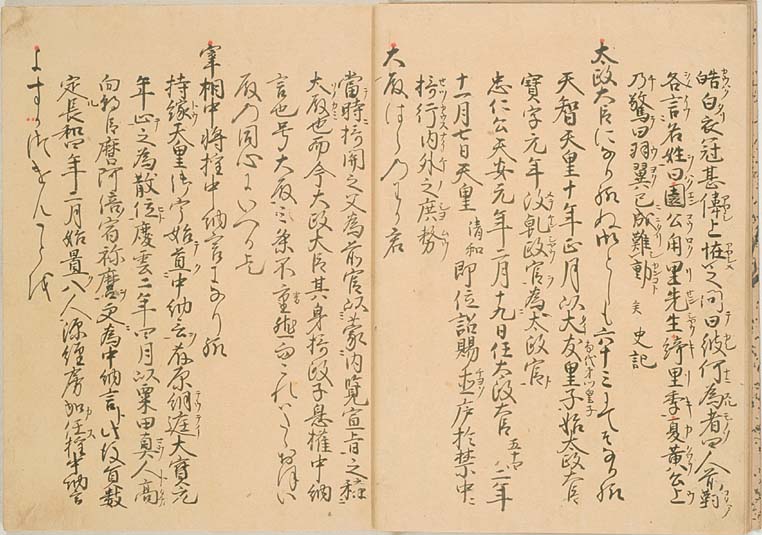 皓白衣冠甚偉上恠之問曰彼何為者四人前對
各言名姓曰園公甪里先生綺里季夏黄公上
乃驚曰羽翼已成難動矣 史記
太政大臣になり給ぬ御としも六十三にそなり給
天智天皇十年正月以大友皇子始太政大臣
寶字元年改乾政官為太政官
忠仁公天安元年二月十九日任太政大臣 五十四
十一月七日天皇 清和 即位詔賜直廬於禁中
摂行内外之庶務
大殿はらの君
當時摂関之父為前官以蒙内覧宣旨之称
大殿也而今太政大臣其身摂政子息権中納
言也号大殿之条不審これハたゝおほい
殿の同心にいへる也
宰相中将権中納言になり給
持統天皇御宇始置中納言 大寶元
年止之為散位慶雲二年四月以粟田真人高
向朝臣麿阿倍宿祢麿更為中納言此後員数
定長和四年二月始置八人源経房加任権中納言